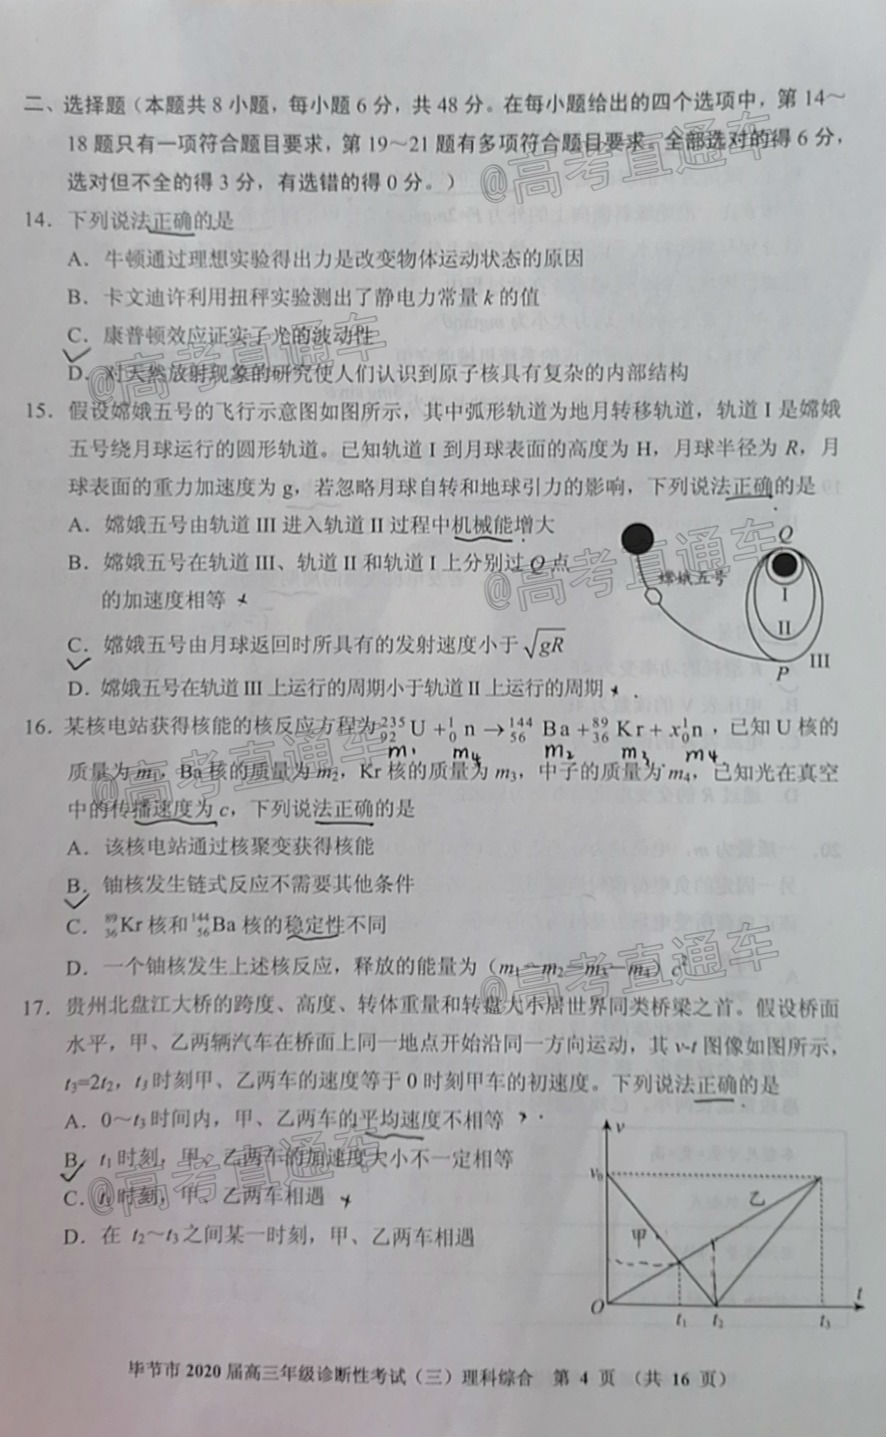 二、选择题（本题共 8 小题，每小题 6 分，共 48 分。在每小题给出的四个选项中，第 14～
18 题只有一项符合题目要求，第 19～21 题有多项符合题目要求。全部选对的得 6 分，
选对但不全的得 3 分，有选错的得 0 分。）
@高考直通车
14．下列说法正确的是
A．牛顿通过理想实验得出力是改变物体运动状态的原因
B．卡文迪许利用扭秤实验测出了静电力常量 k 的值
C．康普顿效应证实了光的波动性
@高考直通车
D．对天然放射现象的研究使人们认识到原子核具有复杂的内部结构
15．假设嫦娥五号的飞行示意图如图所示，其中弧形轨道为地月转移轨道，轨道 I 是嫦娥
五号绕月球运行的圆形轨道。已知轨道 I 到月球表面的高度为 H，月球半径为 R，月
球表面的重力加速度为 g，若忽略月球自转和地球引力的影响，下列说法正确的是
A．嫦娥五号由轨道 III 进入轨道 II 过程中机械能增大
B．嫦娥五号在轨道 III、轨道 II 和轨道 I 上分别过 Q 点
的加速度相等
C．嫦娥五号由月球返回时所具有的发射速度小于√gR
D．嫦娥五号在轨道 III 上运行的周期小于轨道 II 上运行的周期
@高考直通车
Q
嫦娥五号
I
II
III
P
16．某核电站获得核能的核反应方程为²³⁵₉₂U＋¹₀n→¹⁴⁴₅₆Ba＋⁸⁹₃₆Kr＋x¹₀n，已知 U 核的
m₁ m₄ m₂ m₃ m₄
质量为 m₁，Ba 核的质量为 m₂，Kr 核的质量为 m₃，中子的质量为 m₄，已知光在真空
@高考直通车
中的传播速度为 c，下列说法正确的是
A．该核电站通过核聚变获得核能
B．铀核发生链式反应不需要其他条件
C．⁸⁹₃₆Kr 核和¹⁴⁴₅₆Ba 核的稳定性不同
D．一个铀核发生上述核反应，释放的能量为（m₁－m₂－m₃－m₄）c²
@高考直通车
17．贵州北盘江大桥的跨度、高度、转体重量和转盘大小居世界同类桥梁之首。假设桥面
水平，甲、乙两辆汽车在桥面上同一地点开始沿同一方向运动，其 v-t 图像如图所示，
t₃=2t₂，t₃ 时刻甲、乙两车的速度等于 0 时刻甲车的初速度。下列说法正确的是
A．0～t₃ 时间内，甲、乙两车的平均速度不相等
B．t₁ 时刻，甲、乙两车的加速度大小不一定相等
@高考直通车
C．t₁ 时刻，甲、乙两车相遇
D．在 t₂～t₃ 之间某一时刻，甲、乙两车相遇
v
v₀
乙
甲
O
t₁
t₂
t₃
t
毕节市 2020 届高三年级诊断性考试（三）理科综合 第 4 页 （共 16 页）